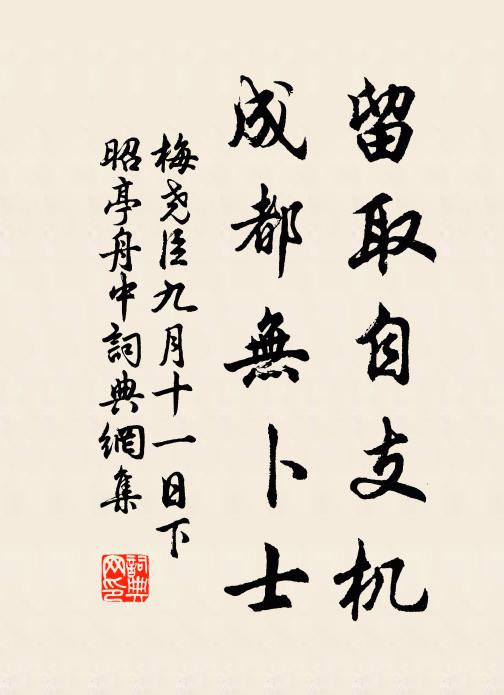 留取自支机
成都無卜士
梅尧臣九月十一日下
昭亭舟中詞典網集
詞典网印